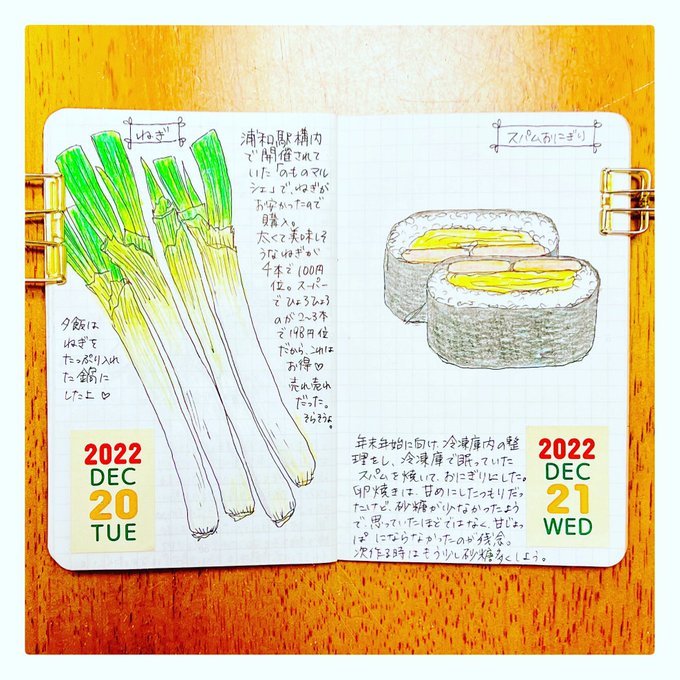 ねぎ
浦和駅構内
で開催されて
いた「のものマル
シェ」で、ねぎが
お安かったので
購入。
太くて美味しそ
うなねぎが
4本で100円
位。スーパー
でひょろひょろ
のが2〜3本
で198円位
だから、これは
お得♡
売れ売れ
だった。
そらそうよ。
夕飯は
ねぎを
たっぷり入れ
た鍋に
したよ♡
2022
DEC
20
TUE
スパムおにぎり
年末年始に向け、冷凍庫内の整
理をし、冷凍庫で眠っていた
スパムを焼いて、おにぎりにした。
卵焼きは、甘めにしたつもりだっ
たけど、砂糖が少なかったよう
で、思っていたほどではなく、甘じょっ
ぱにならなかったのが残念。
次作る時はもう少し砂糖多くしよう。
2022
DEC
21
WED